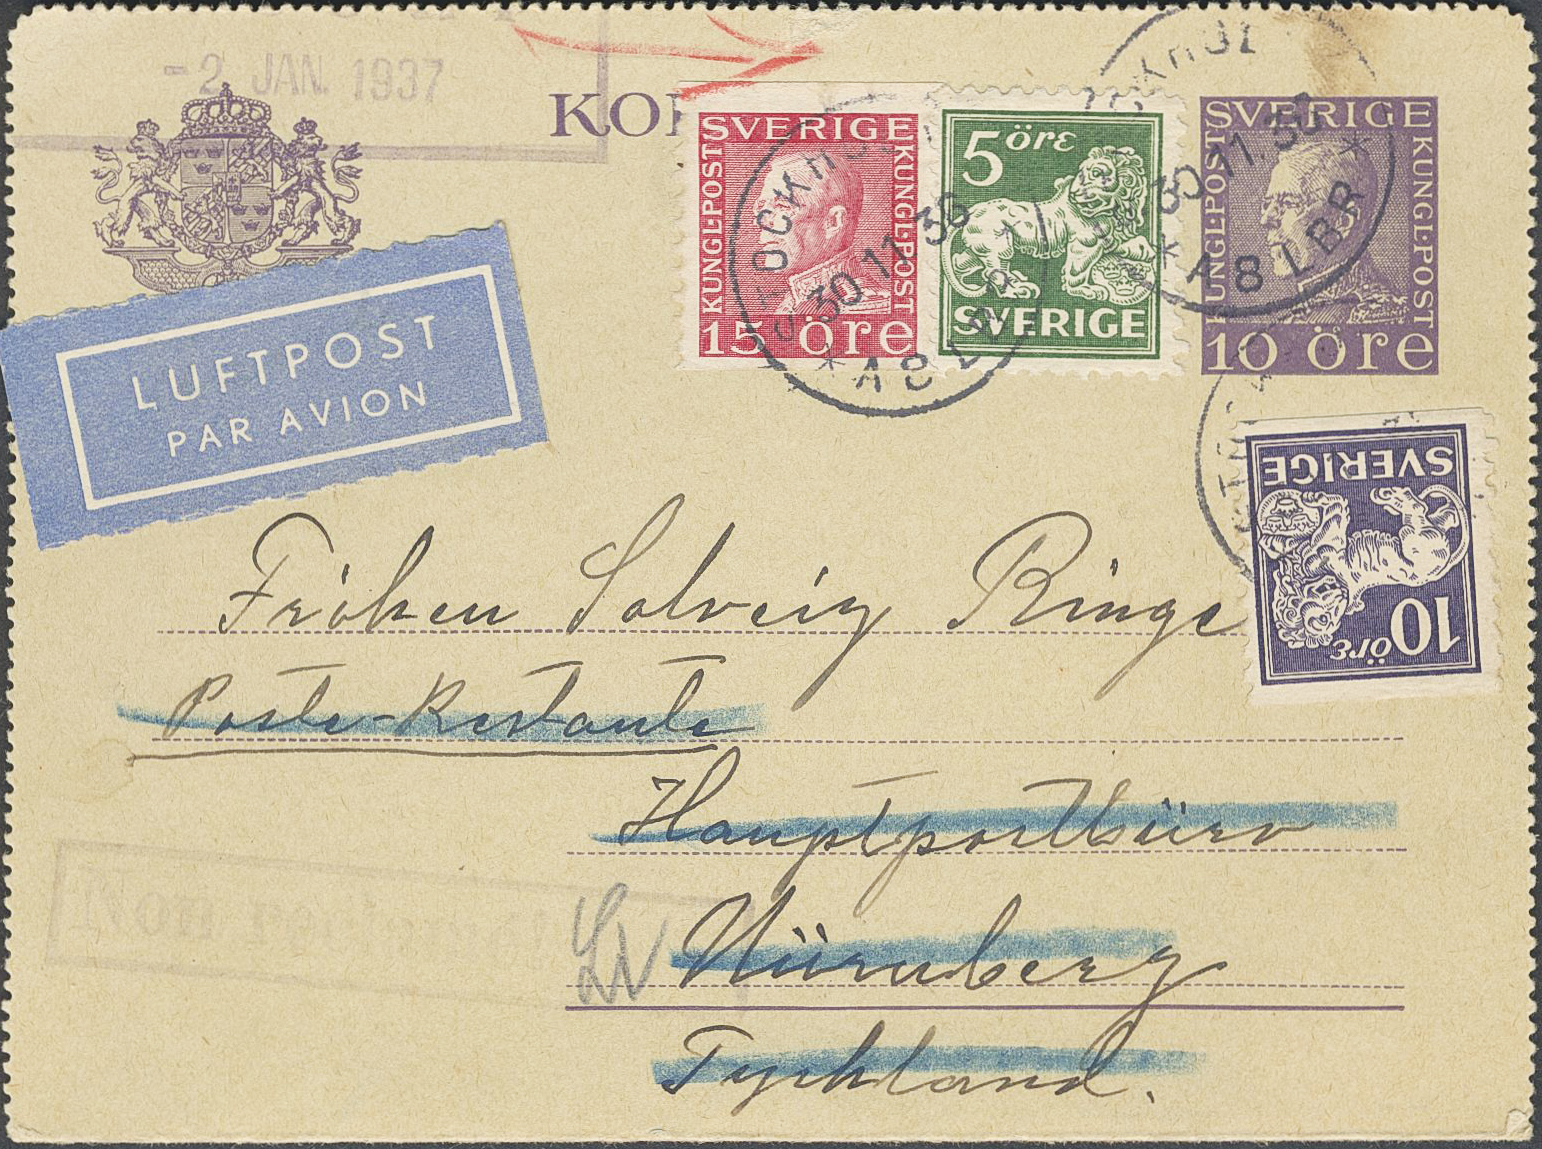 -2 JAN. 1937
KO
SVERIGE
KUNGL·POST
KUNGL·POST
15 öre
5 öre
SVERIGE
SVERIGE
KUNGL·POST
KUNGL·POST
10 öre
STOCKHOL
30.11.36
* A 8 LBR
STOCKHOL
30.11.36
* A 8 LBR *
LUFTPOST
PAR AVION
SVERIGE
10 öre
Fröken Solveig Ringe
Poste-Restante
Hauptpostbüro
Nürnberg
Tyskland.